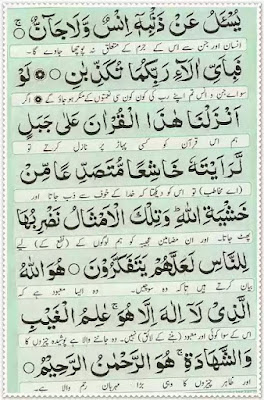 يُسْـَٔلُ عَنْ ذَنْۢبِهٖٓ اِنْسٌ وَّلَا جَآنٌّ ۝
انسان اور جن سے اس کے جرم کے متعلق نہ پوچھا جاوے گا۔
فَبِاَىِّ اٰلَآءِ رَبِّكُمَا تُكَذِّبٰنِ ۝ لَوْ
سواے جن و انس تم اپنے رب کی کون کون سی نعمتوں کے منکر ہو جاؤ گے اگر
اَنْزَلْنَا هٰذَا الْقُرْاٰنَ عَلٰى جَبَلٍ
ہم اس قرآن کو کسی پہاڑ پر نازل کرتے تو
لَّرَاَيْتَهٗ خَاشِعًا مُّتَصَدِّعًا مِّنْ
(اے مخاطب) تو اس کو دیکھتا کہ خدا کے خوف سے دب جاتا اور
خَشْيَةِ اللّٰهِ ؕ وَتِلْكَ الْاَمْثَالُ نَضْرِبُهَا
پھٹ جاتا۔ اور ان مضامین عجیبہ کو ہم لوگوں کے (نفع کے) لیے
لِلنَّاسِ لَعَلَّهُمْ يَتَفَكَّرُوْنَ ۝ هُوَ اللّٰهُ
بیان کرتے ہیں تاکہ وہ سوچیں۔ وہ ایسا معبود ہے کہ
الَّذِىْ لَاۤ اِلٰهَ اِلَّا هُوَ ۚ عٰلِمُ الْغَيْبِ
اس کے سوا کوئی اور معبود (بننے کے لائق) نہیں۔ وہ جاننے والا ہے پوشیدہ چیزوں کا
وَالشَّهَادَةِ ۚ هُوَ الرَّحْمٰنُ الرَّحِيْمُ ۝
اور ظاہر چیزوں کا وہی بڑا مہربان رحم والا ہے۔